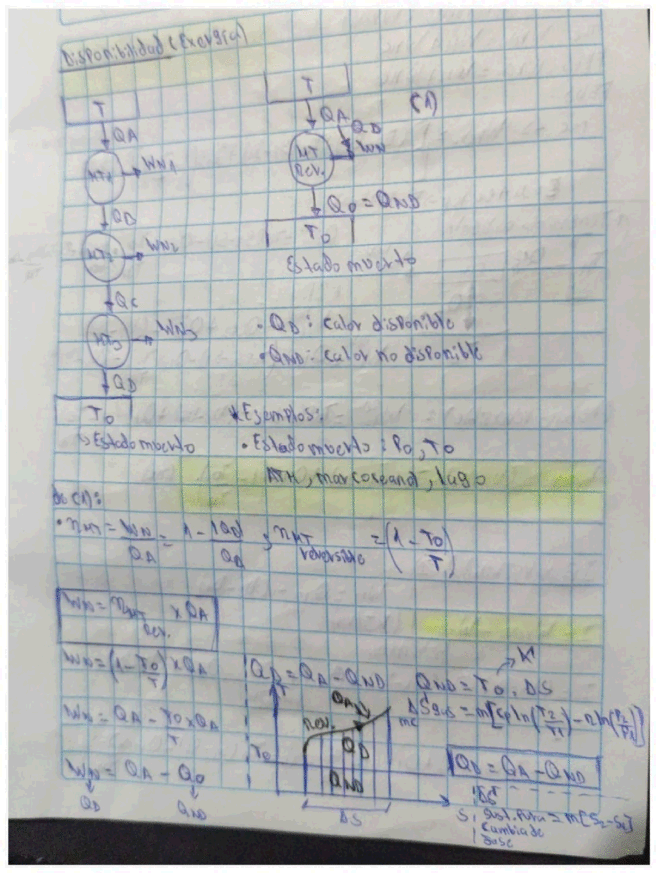 Disponibilidad (Exergía)
T
QA
MT1
WN1
QB
MT2
WN2
QC
MT3
WN3
QD
T0
Estado muerto
T
(1)
QA
QD
MT
Rev.
WN
Q0 = QND
T0
Estado muerto
• QD: calor disponible
• QND: calor no disponible
*Ejemplos:
• Estado muerto: P0, T0
ATM, mar oceano, lago
de (1):
• nMT = WN/QA = 1 - |Q0|/QA ; nMT reversible = (1 - T0/T)
WN = nMT Rev. x QA
WN = (1 - T0/T) x QA
WN = QA - T0/T x QA
WN = QA - Q0
QD
QND
QD = QA - QND
T
Rev.
T0
QD
QND
ΔS
S
QND = T0 . ΔS
K
ΔSgas = m[Cp ln(T2/T1) - R ln(P2/P1)]
QD = QA - QND
ΔS
Sust. Pura = m[S2-S1]
Cambia de
fase